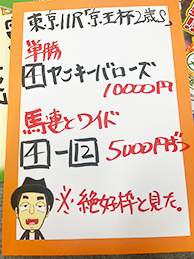 東京11R「京王杯2歳S」
単勝
4 ヤンキーバローズ
10000円
馬連とワイド
4-12 5000円ずつ
※絶好枠と見た。